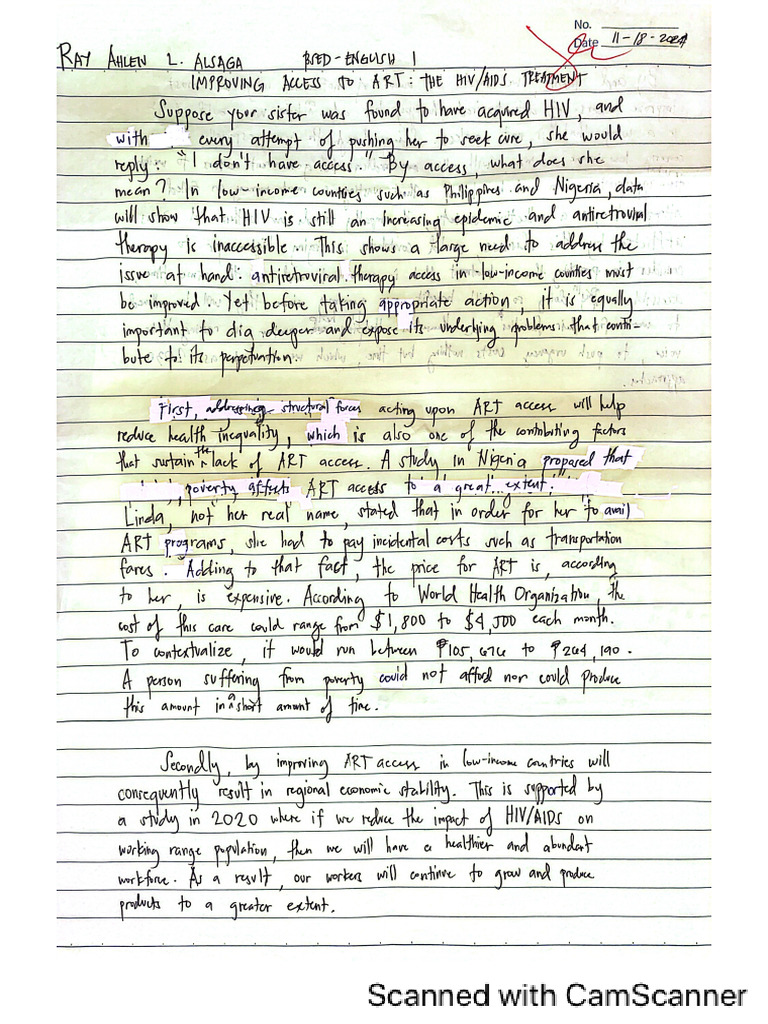 No.
Date 11-18-2024
RAY AHLEN L. ALSAGA BSED-ENGLISH 1
IMPROVING ACCESS TO ART: THE HIV/AIDS TREATMENT
Suppose your sister was found to have acquired HIV, and
with every attempt of pushing her to seek cure, she would
reply: "I don't have access." By access, what does she
mean? In low-income countries such as Philippines and Nigeria, data
will show that HIV is still an increasing epidemic and antiretroviral
therapy is inaccessible. This shows a large need to address the
issue at hand: antiretroviral therapy access in low-income counties must
be improved. Yet before taking appropriate action, it is equally
important to dig deeper and expose its underlying problems that contri-
bute to its perpetuation.
First, addressing structural forces acting upon ART access will help
reduce health inequality, which is also one of the contributing factors
that sustain the lack of ART access. A study in Nigeria proposed that
poverty affects ART access to a great extent.
Linda, not her real name, stated that in order for her to avail
ART programs, she had to pay incidental costs such as transportation
fares. Adding to that fact, the price for ART is, according
to her, is expensive. According to World Health Organization, the
cost of this care could range from $1,800 to $4,500 each month.
To contextualize, it would run between ₱105,676 to ₱264,190.
A person suffering from poverty could not afford nor could produce
this amount in a short amount of time.
Secondly, by improving ART access in low-income countries will
consequently result in regional economic stability. This is supported by
a study in 2020 where if we reduce the impact of HIV/AIDS on
working range population, then we will have a healthier and abundant
workforce. As a result, our workers will continue to grow and produce
products to a greater extent.
Scanned with CamScanner